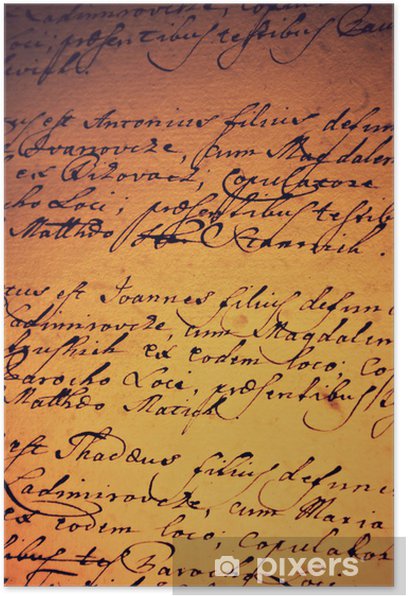 Ladimirovcze, copul
Loci, præsentibus testibus Pau
est Antonius filius defun
Ivanovcze, cum Magdalen
ex Bizovacz, Copulatore
cho Loci; præsentibus testib
Mattheo Stanovich.
tus est Joannes filius defunc
Ladimirovcze, cum Magdalen
ex eodem loco, co
Parocho Loci, præsentibus
Mattheo Matich
est Thadæus filius defunc
Ladimirovcze, cum Maria
ex eodem loco, copulator
tibus tes Parocho
pixers